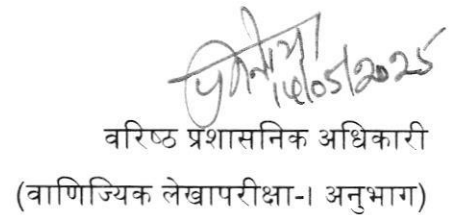 14/05/2025
वरिष्ठ प्रशासनिक अधिकारी
(वाणिज्यिक लेखापरीक्षा-I अनुभाग)